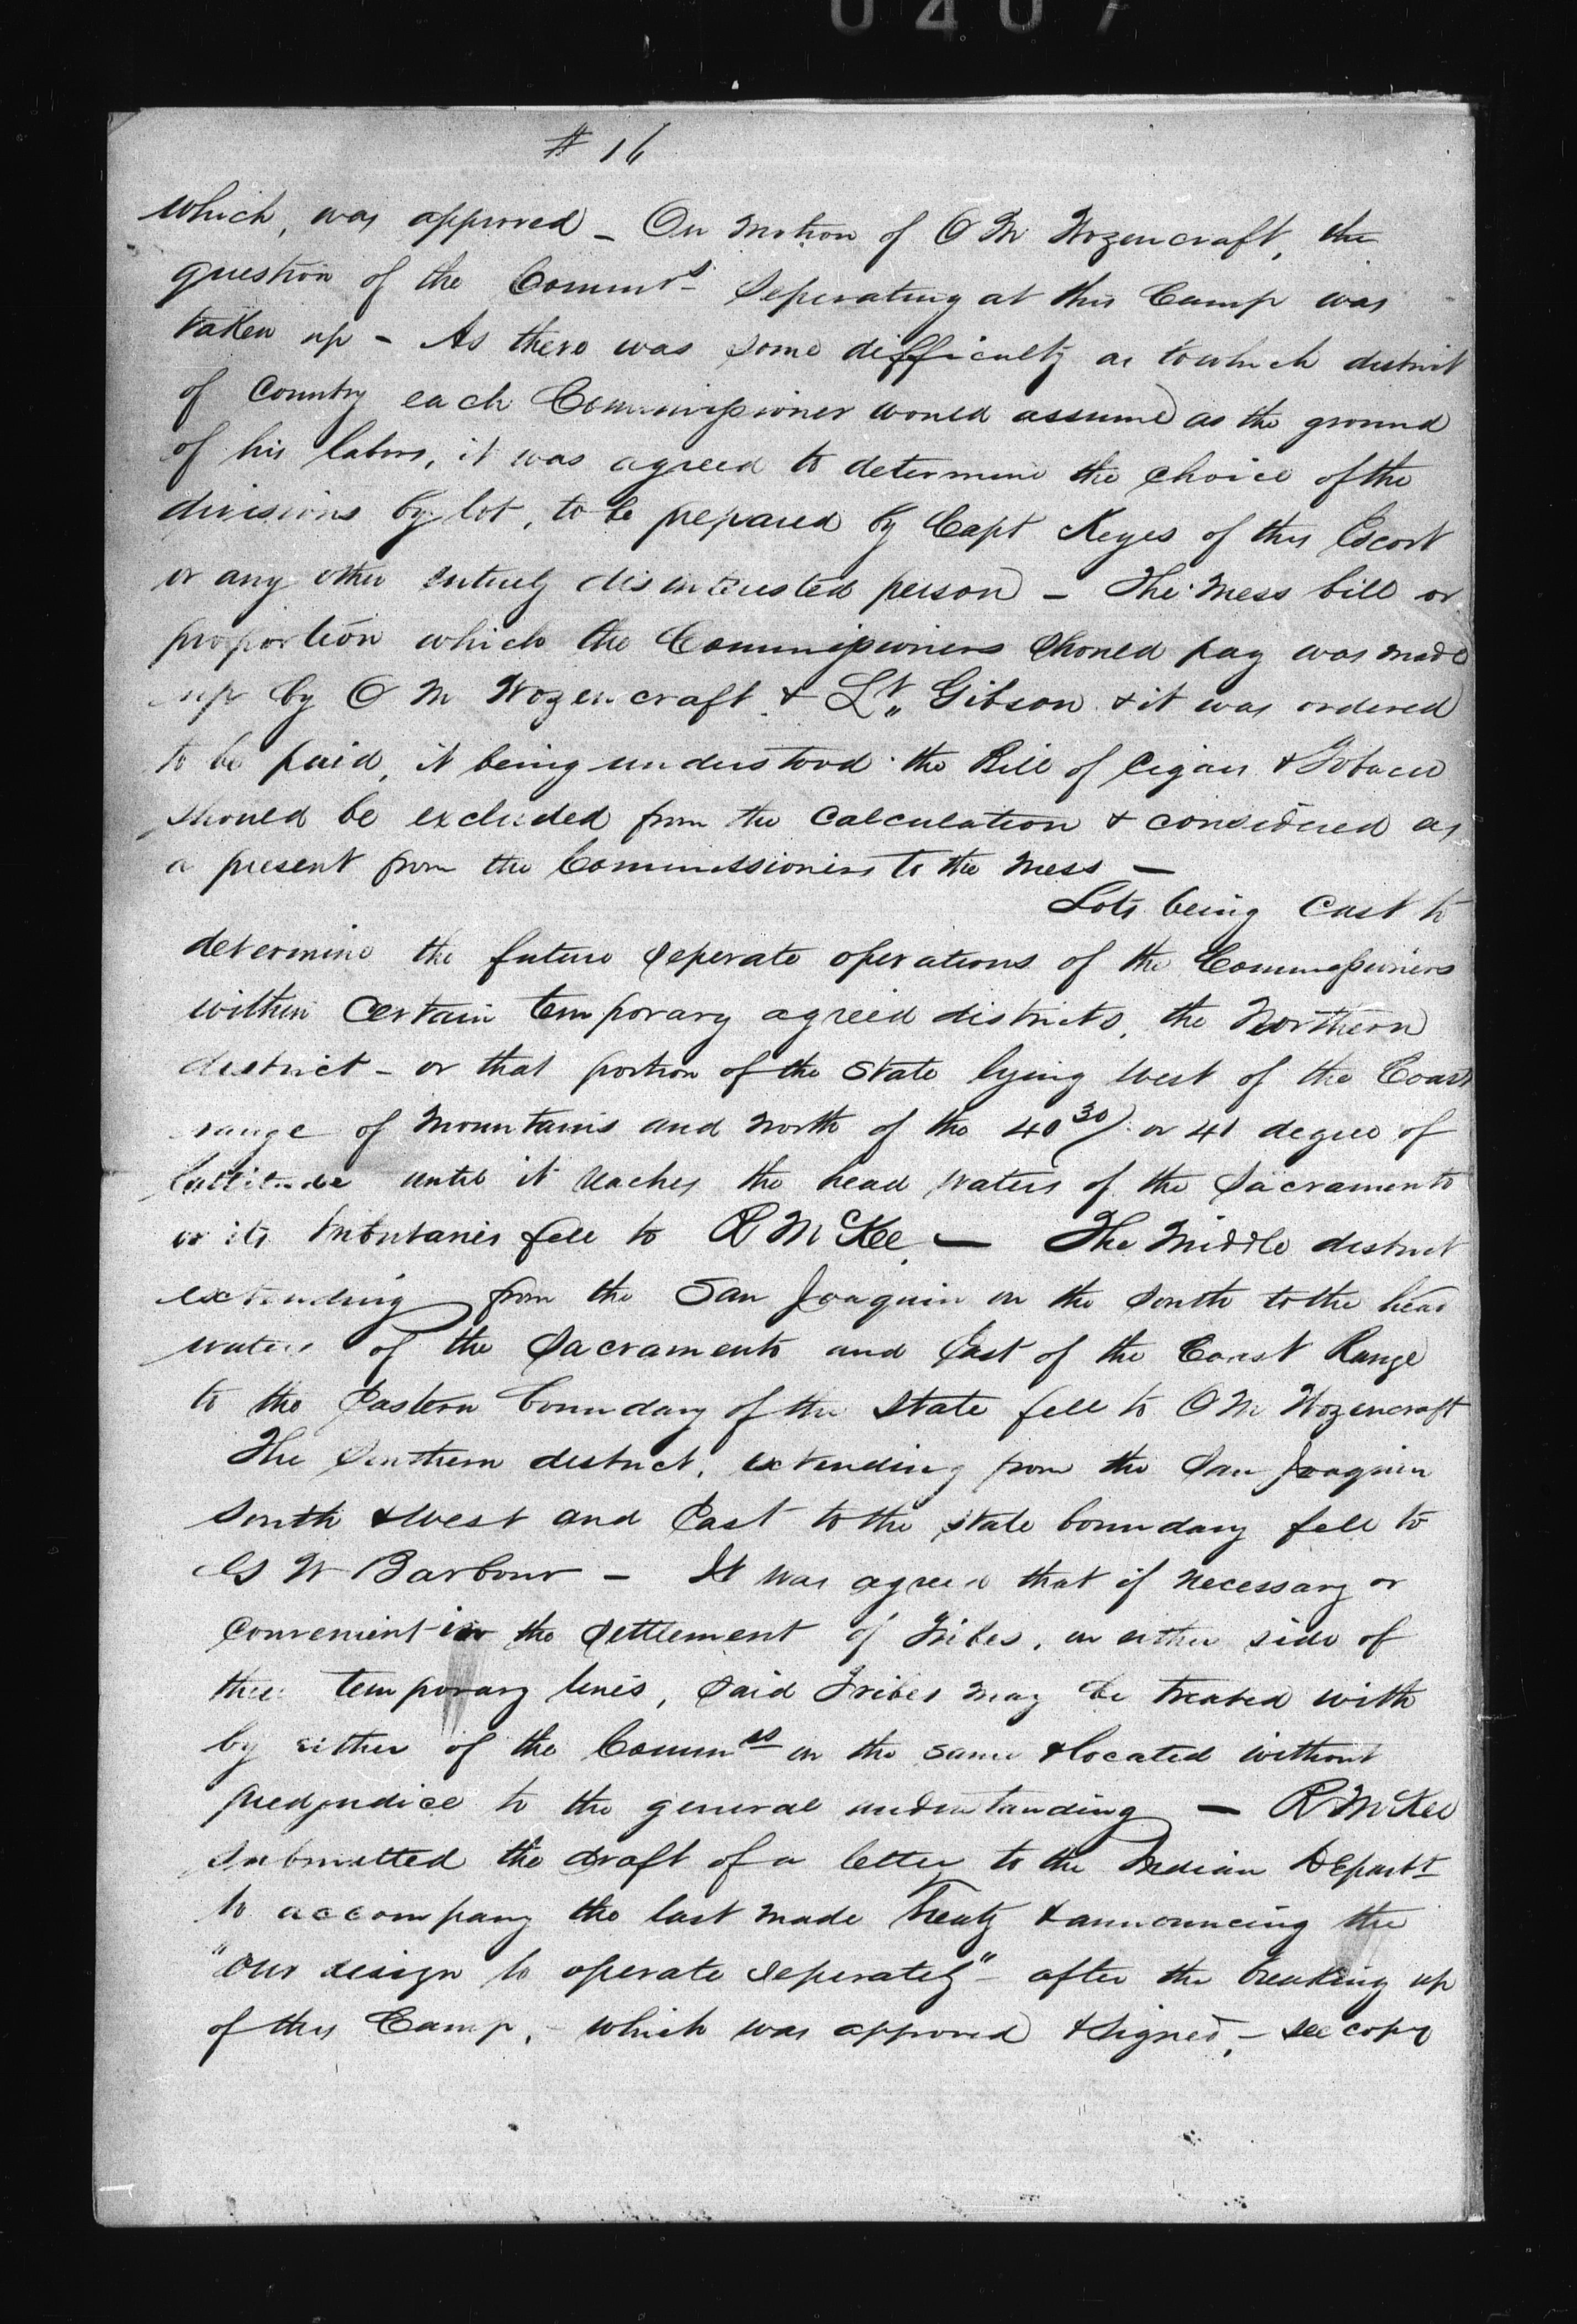 0407
# 16
which, was approved – On motion of O M Wozencraft, the
question of the Commrs seperating at this Camp was
taken up – As there was some difficulty as to which district
of Country each Commissioner would assume as the ground
of his labors, it was agreed to determine the choice of the
divisions by lot, to be prepared by Capt Keyes of the Escort
or any other entirely disinterested person – The Mess bill or
proportion which the Commissioners should pay was made
up by O M Wozencraft & Lt Gibson & it was ordered
to be paid, it being understood the Bill of Cigars & Tobacco
should be excluded from the calculation & considered as
a present from the Commissioners to the mess –
Lots being cast to
determine the future seperate operations of the Commissioners
within certain temporary agreed districts, the Northern
district – or that portion of the State lying west of the Coast
range of mountains and north of the 40 30/ or 41 degree of
lattitude until it reaches the head waters of the Sacramento
or its tributaries fell to R McKee – The Middle district
extending from the San Joaquin on the South to the head
waters of the Sacramento and East of the Coast Range
to the Eastern boundary of the State fell to O M Wozencraft
The Southern district, extending from the San Joaquin
South & west and East to the state boundary fell to
G W Barbour – It was agreed that if necessary or
convenient in the settlement of Tribes, on either side of
these temporary lines, said Tribes may be treated with
by either of the Commrs on the same & located without
predjudice to the general understanding – R McKee
submitted the draft of a letter to the Indian Departt
to accompany the last made Treaty & announcing the
"our design to operate seperately" – after the breaking up
of this Camp, – which was approved & signed, – see copy